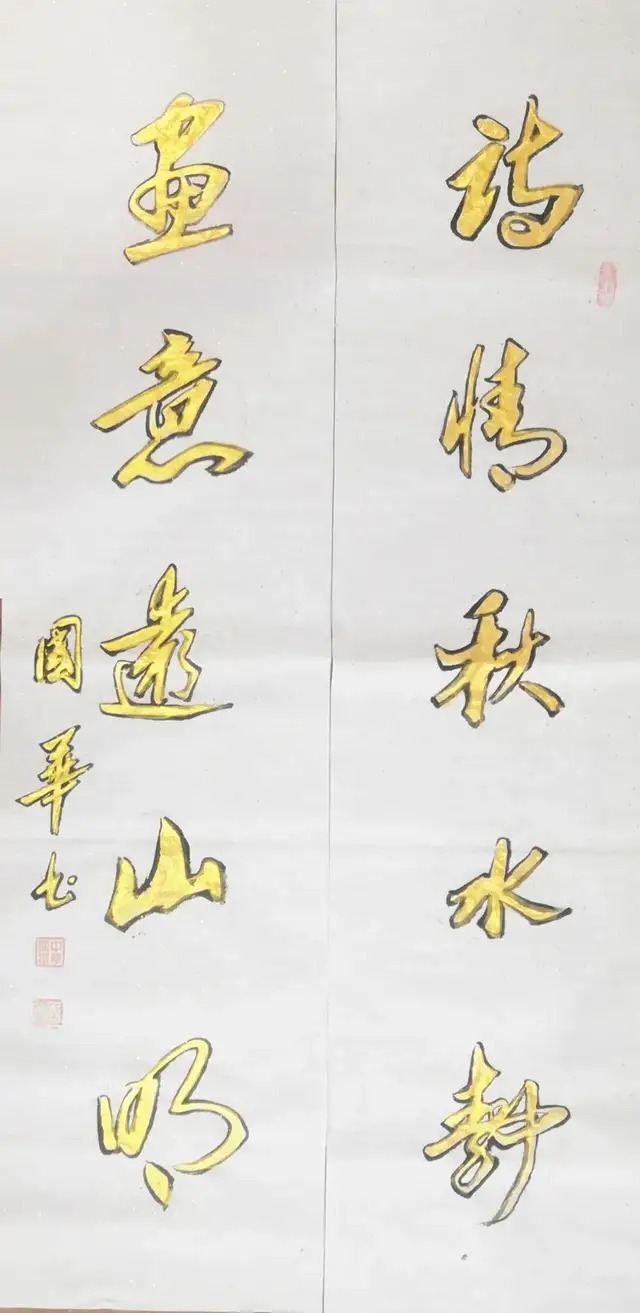 詩情秋水静
畫意遠山明
國華书